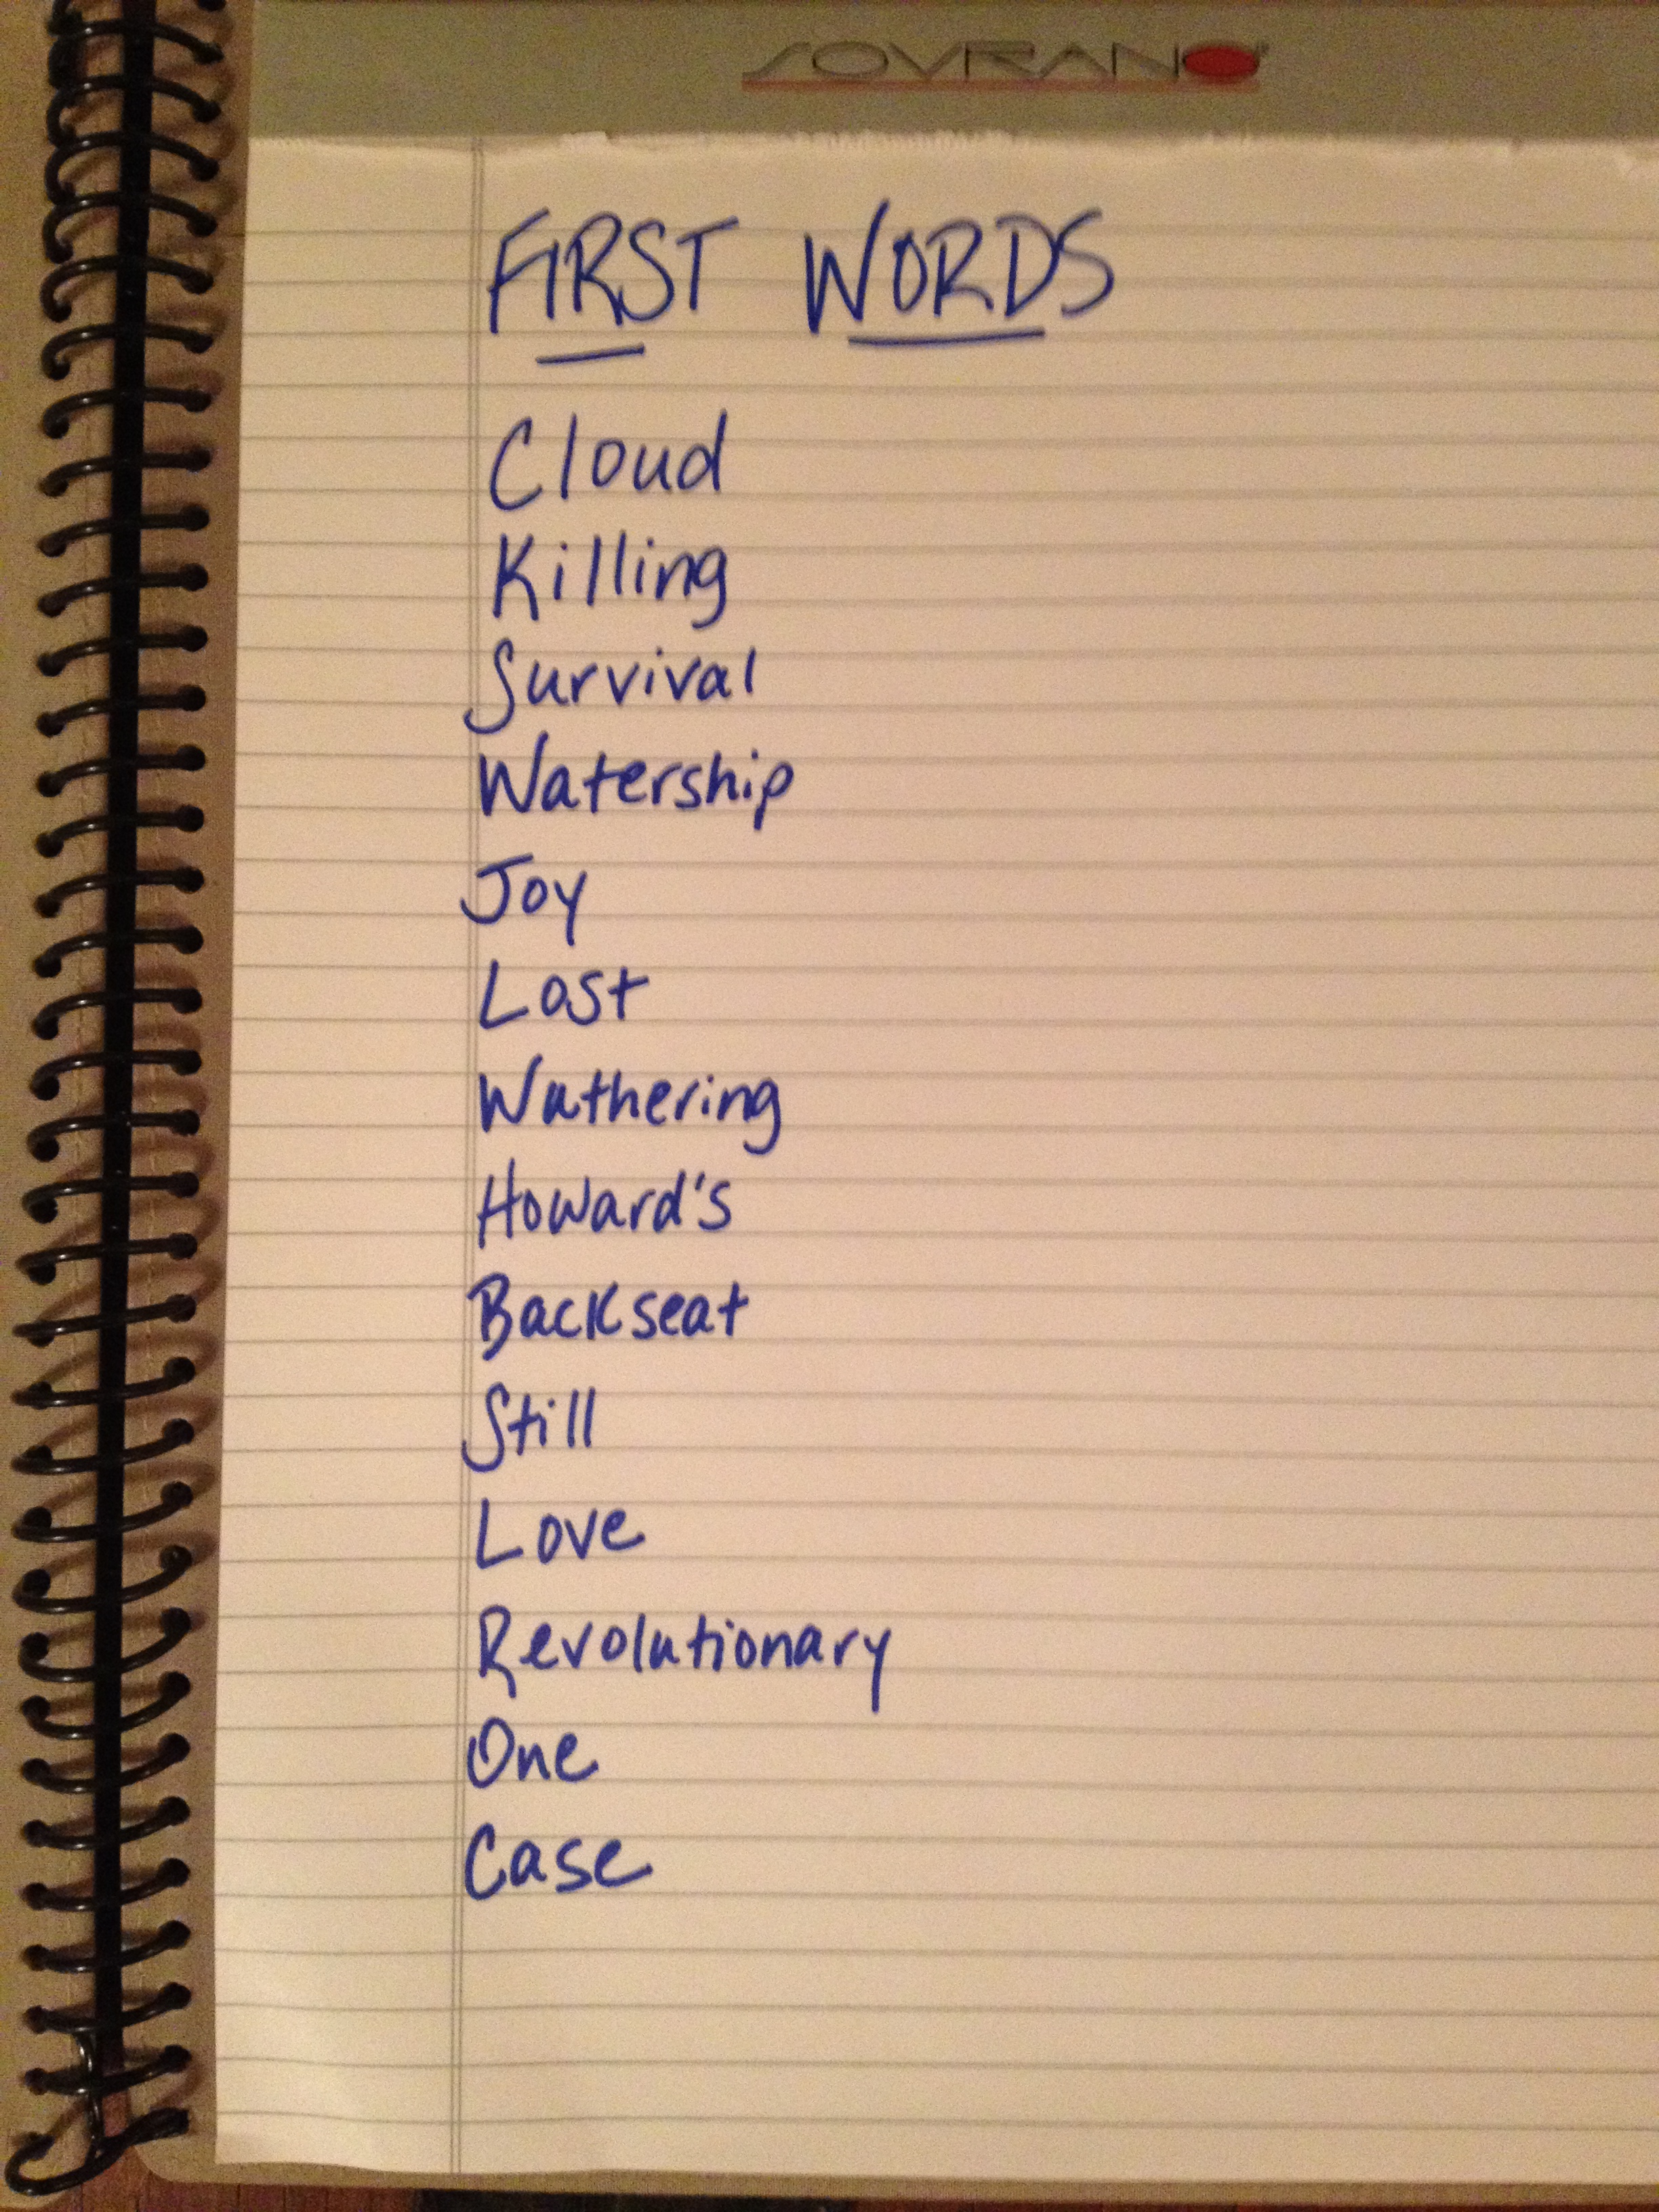 SOVRANO
FIRST WORDS
Cloud
Killing
Survival
Watership
Joy
Lost
Wuthering
Howard's
Backseat
Still
Love
Revolutionary
One
Case